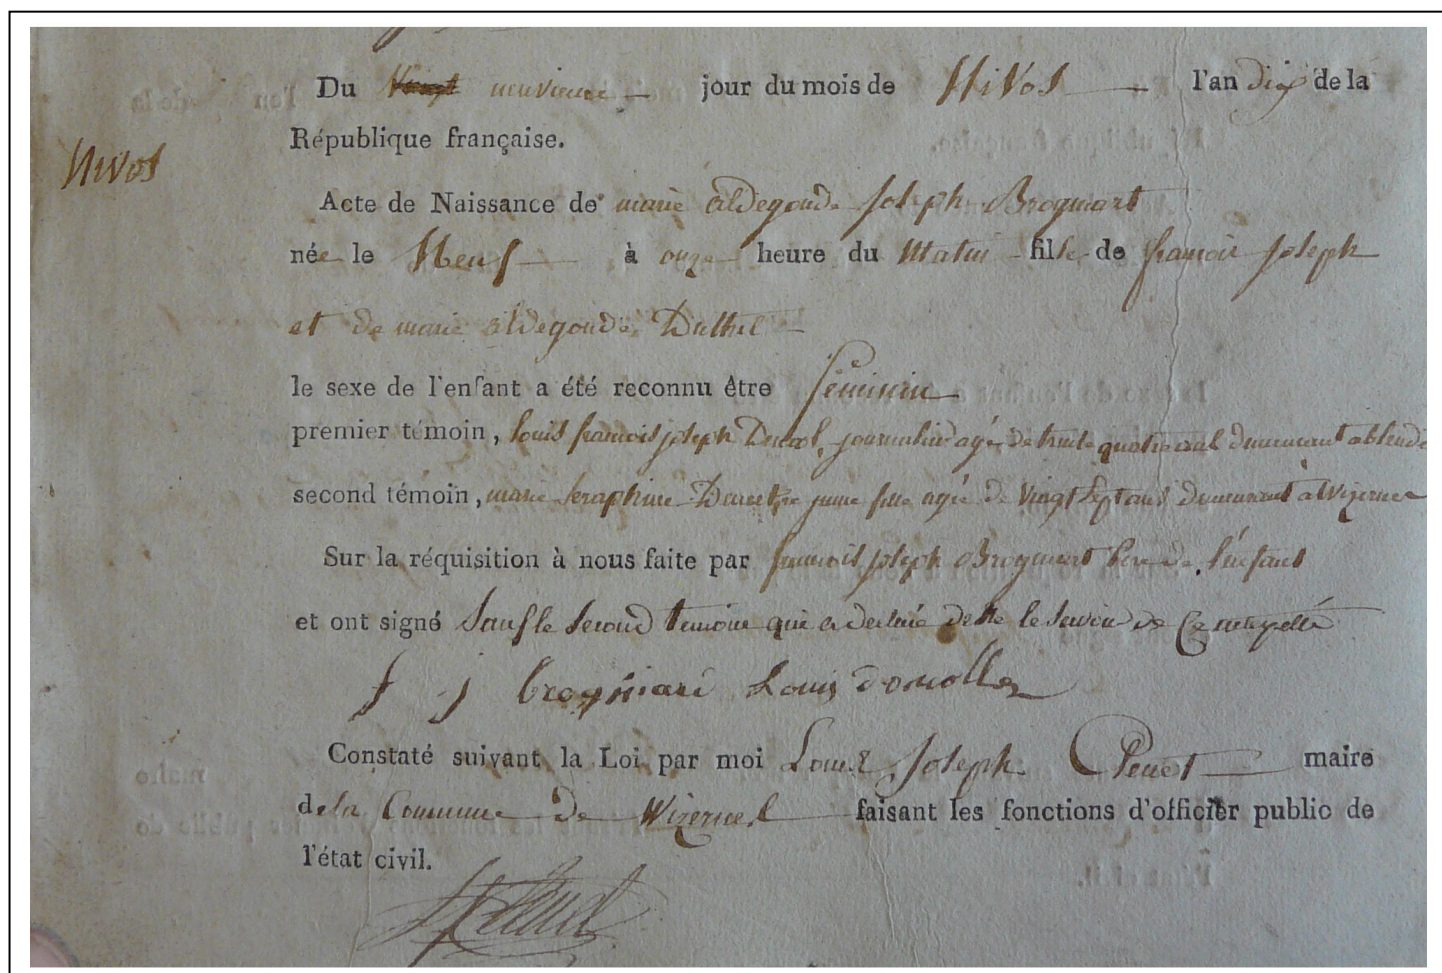 Du Vingt neuvieme jour du mois de Nivos l'an dix de la
République française.
Nivos
Acte de Naissance de marie aldegonde Joseph Brogniart
née le Neuf à onze heure du Matin fille de francois Joseph
et de marie aldegonde Duthil
le sexe de l'enfant a été reconnu être feminin
premier témoin, louis francois joseph journalier agé de trente quatre ans demeurant
second témoin, marie Seraphine jeune fille agée de vingt sept ans demeurant à Wizernes
Sur la réquisition à nous faite par francois joseph Brogniart pere de l'enfant
et ont signé Sauf le Second temoin qui a declaré de ne le savoir de ce interpellé
f j brogniart Louis
Constaté suivant la Loi par moi Louis Joseph maire
de la Commune de Wizernes faisant les fonctions d'officier public de
l'état civil.